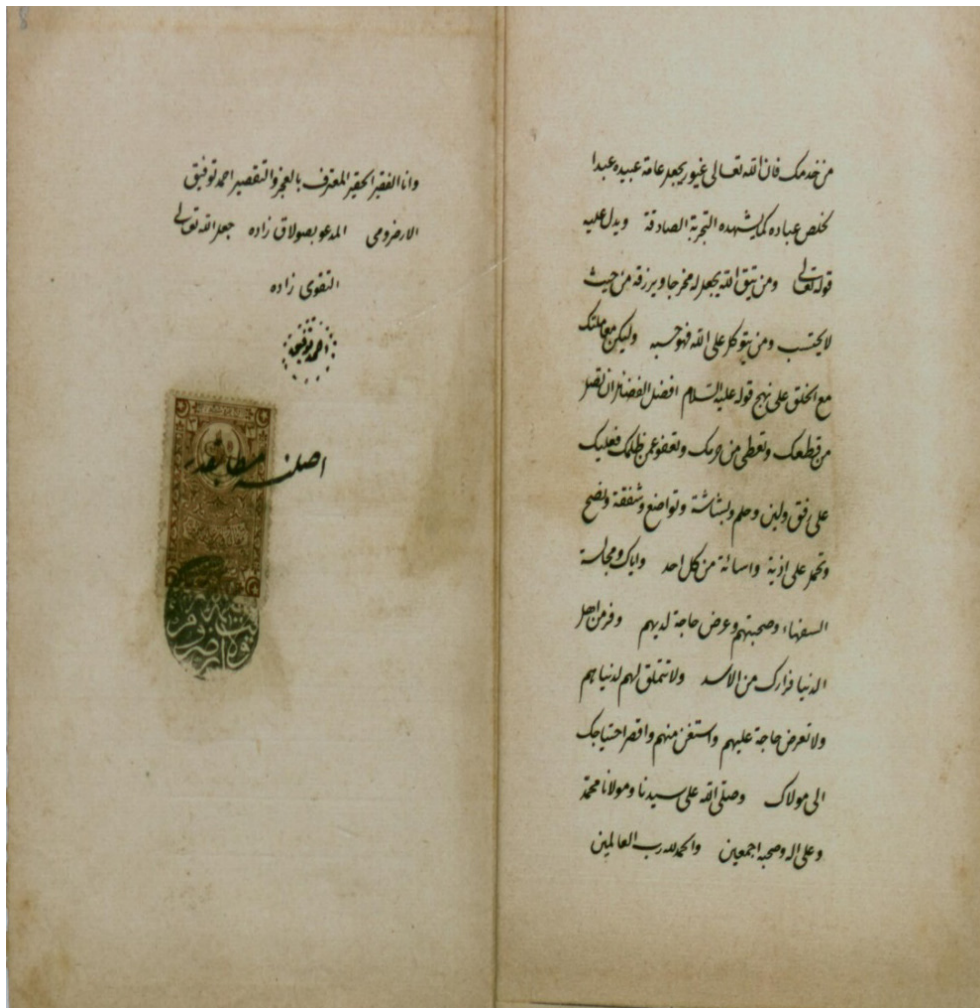 من خدمك فان الله تعالى غيور يجعل عامة عبيده عبدا
لخلص عباده كما يشهده التجربة الصادقة ويدل عليه
قوله تعالى ومن يتق الله يجعل له مخرجا ويرزقه من حيث
لا يحتسب ومن يتوكل على الله فهو حسبه وليكن معاملتك
مع الخلق على نهج قوله عليه السلام افضل الفضائل ان تصل
من قطعك وتعطي من حرمك وتعفو عمن ظلمك فعليك
على رفق ولين وحلم وبشاشة وتواضع وشفقة ونصح
وتحمل على اذية واسائة من كل احد واياك ومجالسة
السفهاء وصحبتهم وعرض حاجة لديهم وفر من اهل
الدنيا فرارك من الاسد ولا تتملق لهم لدنياهم
ولا تعرض حاجة عليهم واستغن منهم واقصر احتياجك
الى مولاك وصلى الله على سيدنا ومولانا محمد
وعلى اله وصحبه اجمعين والحمد لله رب العالمين
وانا الفقير الحقير المعترف بالعجز والتقصير احمد توفيق
الارضرومى المدعو بصولاق زاده جعل الله تعالى
التقوى زاده
احمد توفيق
اصلنه مطابقدر